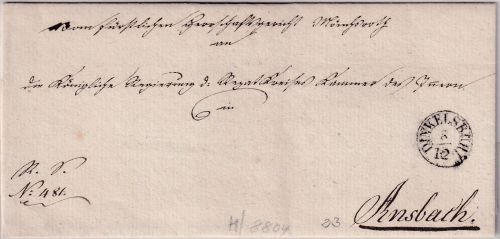 Vom Fürstlichen Herrschaftsgericht Mönchsroth
an
die Königliche Regierung d. Rezat Kreises Kammer des Innern.
in
DINKELSBÜHL
8
12
R. S.
No. 481.
Ansbach.
H/ 8804
23